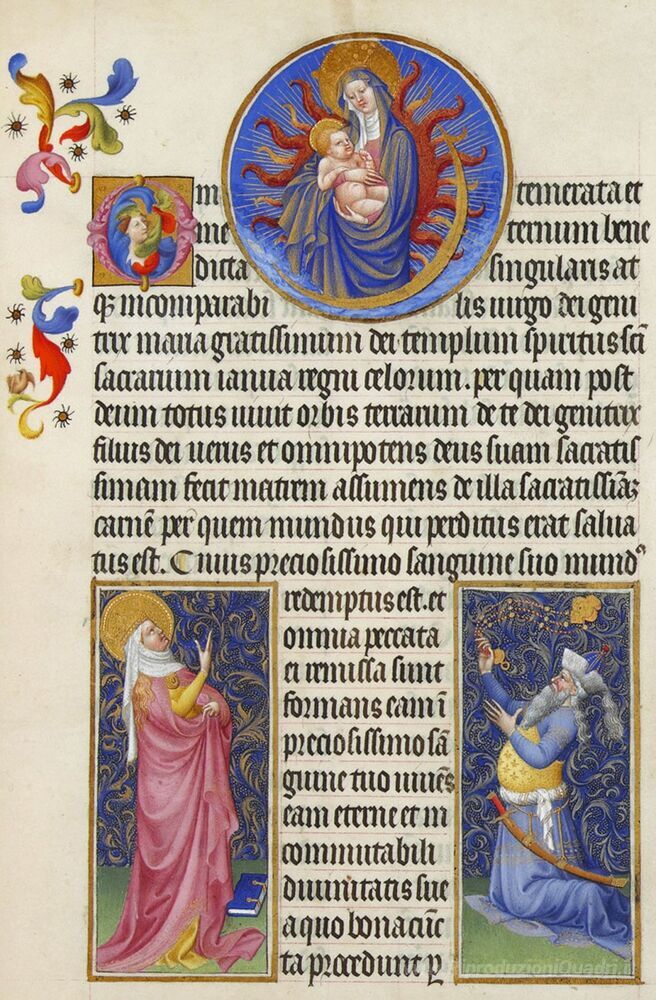 O in temerata et
ine ternum bene
dicta singularis at
qꝫ incomparabi lis uirgo dei geni
trix maria gratissimum dei templum spiritus sc̄i
sacrarium ianua regni celorum. per quam post
deum totus uiuit orbis terrarum de te dei genitrix
filius dei uerus et omnipotens deus suam sacratis
simam fecit matrem assumens de illa sacratissiāꝫ
carnē per quem mundus qui perditus erat salua
tus est. Cuius preciosissimo sanguine suo mundꝰ
redemptus est. et
omnia peccata
ei remissa sunt
formans eam ī
preciosissimo sā
guine tuo uniēs
eam eterne et in
commutabili
diuinitatis sue
a quo bona cūc
ta procedunt ꝑ